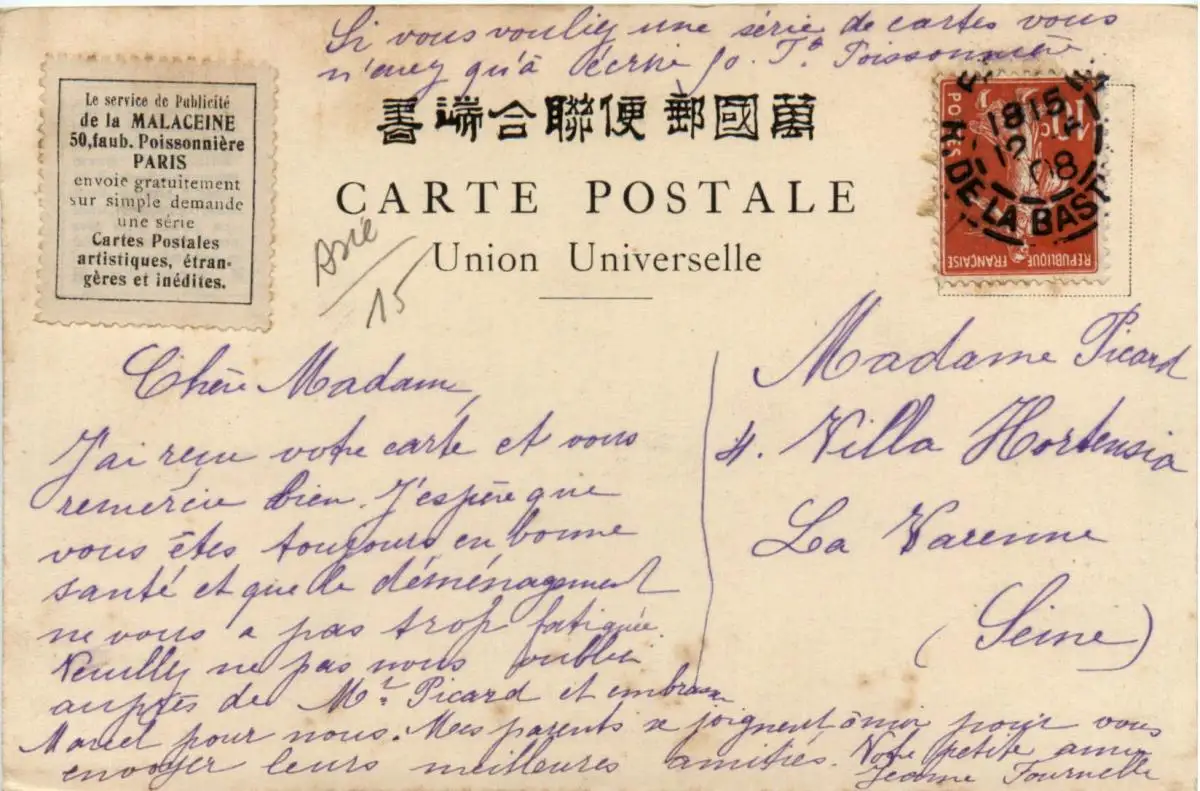 Si vous vouliez une série de cartes vous
n'avez qu'à écrire 50. Fg Poissonnière
Le service de Publicité
de la MALACEINE
50, faub. Poissonnière
PARIS
envoie gratuitement
sur simple demande
une série
Cartes Postales
artistiques, étran-
gères et inédites.
萬國郵便聯合端書
CARTE POSTALE
Union Universelle
Asie
15
1815
12 08
R. DE LA BAST
10c
POSTES
REPUBLIQUE FRANÇAISE
Chère Madame,
J'ai reçu votre carte et vous
remercie bien. J'espère que
vous êtes toujours en bonne
santé et que le déménagement
ne vous a pas trop fatiguée.
Veuillez ne pas nous oublier
auprès de Mr Picard et embrasser
Marcel pour nous. Mes parents se joignent à moi pour vous
envoyer leurs meilleures amitiés. Votre petite amie
Jeanne Fournelle
Madame Picard
4. Villa Hortensia
La Varenne
(Seine)